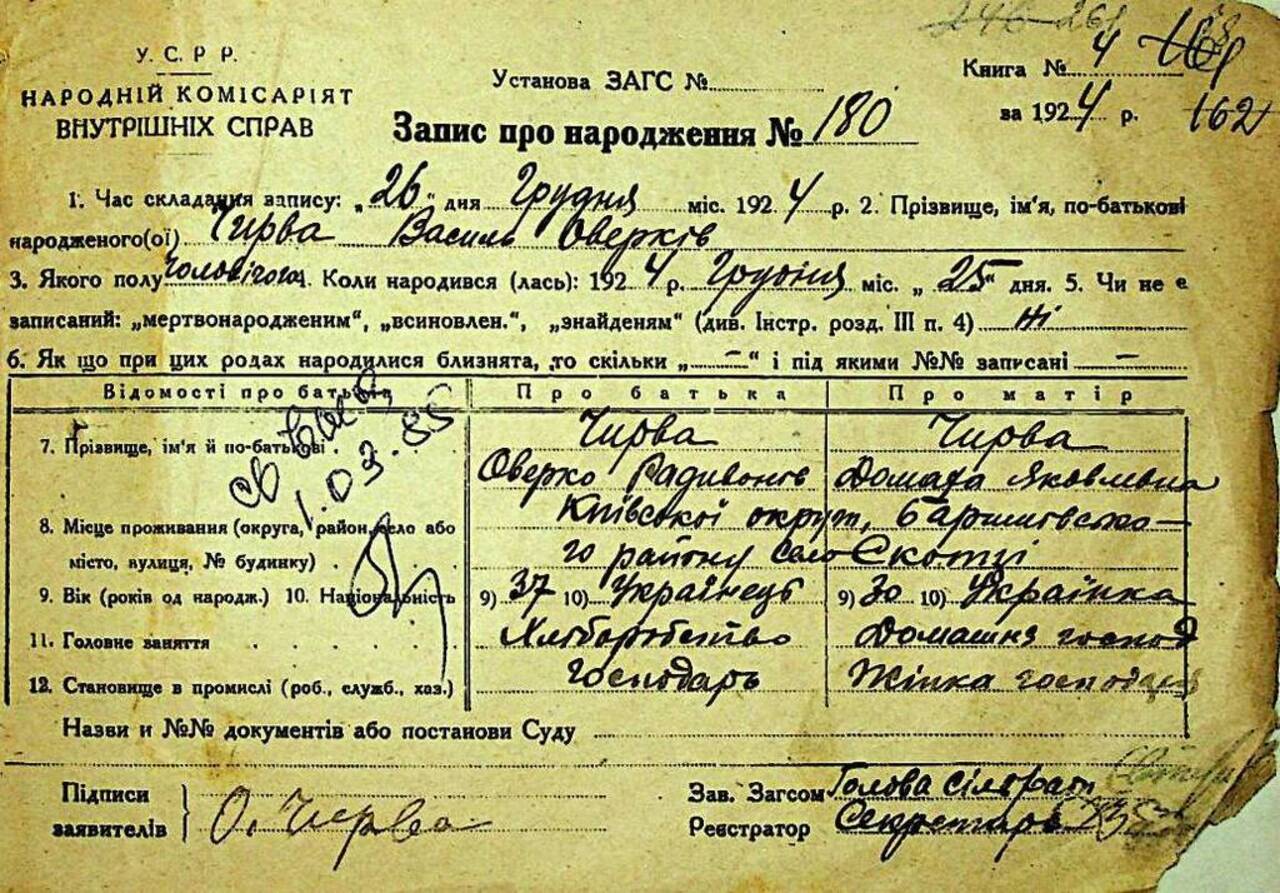 246 261
У. С. Р Р.
НАРОДНІЙ КОМІСАРІЯТ
ВНУТРІШНІХ СПРАВ
Установа ЗАГС №
Книга № 4 161
за 1924 р. 162
Запис про народження № 180
1. Час складання запису: „26“ дня Грудня міс. 1924 р. 2. Прізвище, ім'я, по-батькові
народженого(ої) Чирва Василь Оверків
3. Якого полу чоловічого 4. Коли народився (лась): 1924 р. Грудня міс. „25“ дня. 5. Чи не є
записаний: „мертвонародженим“, „всиновлен.“, „знайденям“ (див. Інстр. розд. III п. 4) Ні
6. Як що при цих родах народилися близнята, то скільки „—“ і під якими №№ записані —
Відомості про батьків Про батька Про матір
7. Прізвище, ім'я й по-батькові Чирва Чирва
Оверко Радивонов Домаха Яковлевна
8. Місце проживання (округа, район, село або Київської округи, Баришівсько-
місто, вулиця, № будинку) го району село Скотці
9. Вік (років од народж.) 10. Національність 9) 37 10) Українець 9) 30 10) Українка
11. Головне заняття Хліборобство Домашнє господ
12. Становище в промислі (роб., служб., хаз.) Господарь Жінка господаря
1.03.85
Назви и №№ документів або постанови Суду
Підписи
заявителів О. Чирва
Зав. Загсом Голова сільради
Реєстратор Секретарь